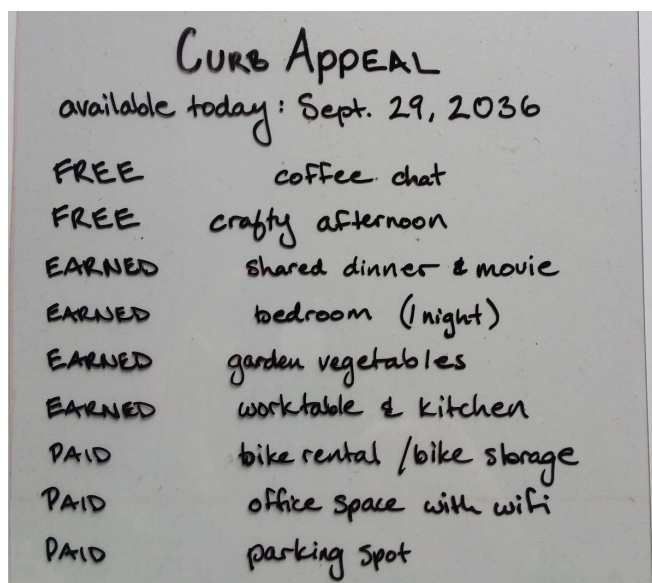 CURB APPEAL
available today: Sept. 29, 2036
FREE coffee chat
FREE crafty afternoon
EARNED shared dinner & movie
EARNED bedroom (1 night)
EARNED garden vegetables
EARNED worktable & kitchen
PAID bike rental / bike storage
PAID office space with wifi
PAID parking spot